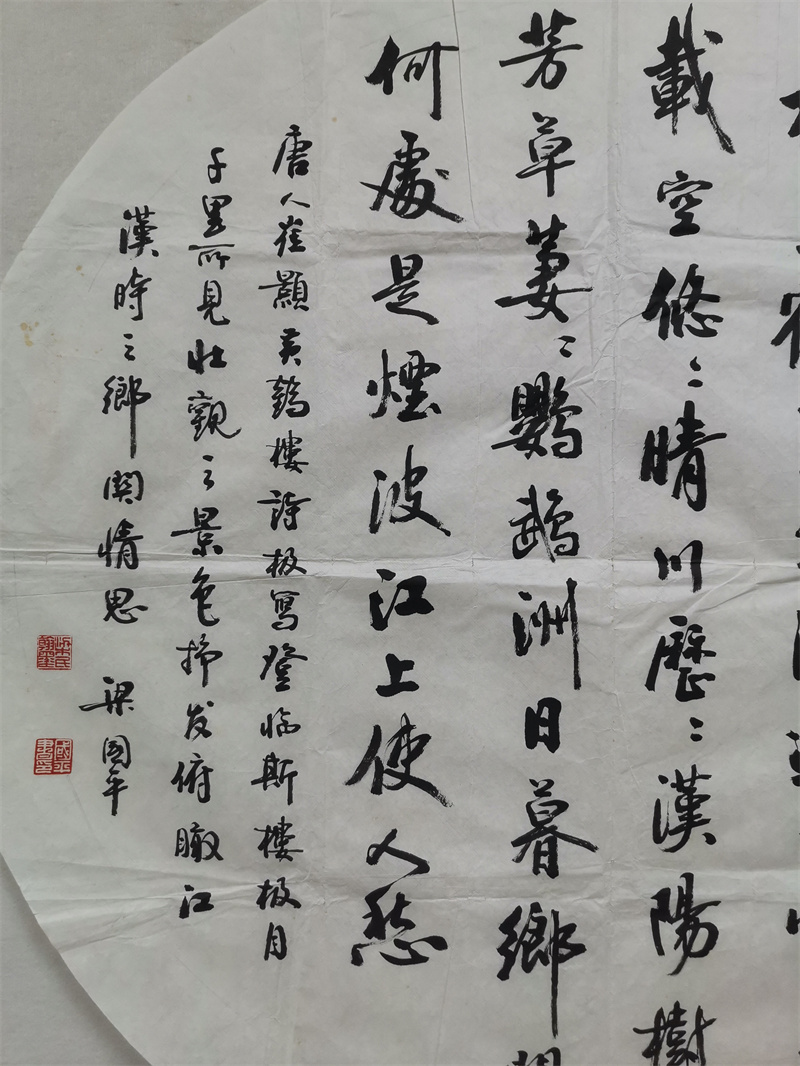 載空悠〻晴川歷〻漢陽樹
芳草萋〻鸚鵡洲日暮鄉
何處是煙波江上使人愁
唐人崔顥黃鶴樓詩极寫登臨斯樓极目
千里所見壯觀之景色抒发俯瞰江
漢時之鄉関情思 梁國平
梁氏翰墨
國平書印